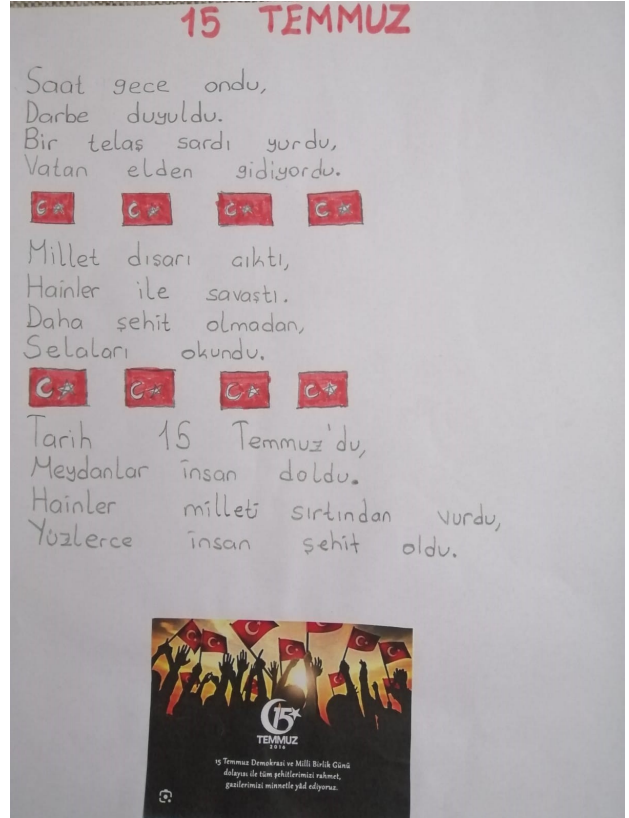 15 TEMMUZ
Saat gece ondu,
Darbe duyuldu.
Bir telaş sardı yurdu,
Vatan elden gidiyordu.
Millet dışarı çıktı,
Hainler ile savaştı.
Daha şehit olmadan,
Selaları okundu.
Tarih 15 Temmuz'du,
Meydanlar insan doldu.
Hainler milleti sırtından vurdu,
Yüzlerce insan şehit oldu.
15
TEMMUZ
2016
15 Temmuz Demokrasi ve Milli Birlik Günü
dolayısı ile tüm şehitlerimizi rahmet,
gazilerimizi minnetle yâd ediyoruz.